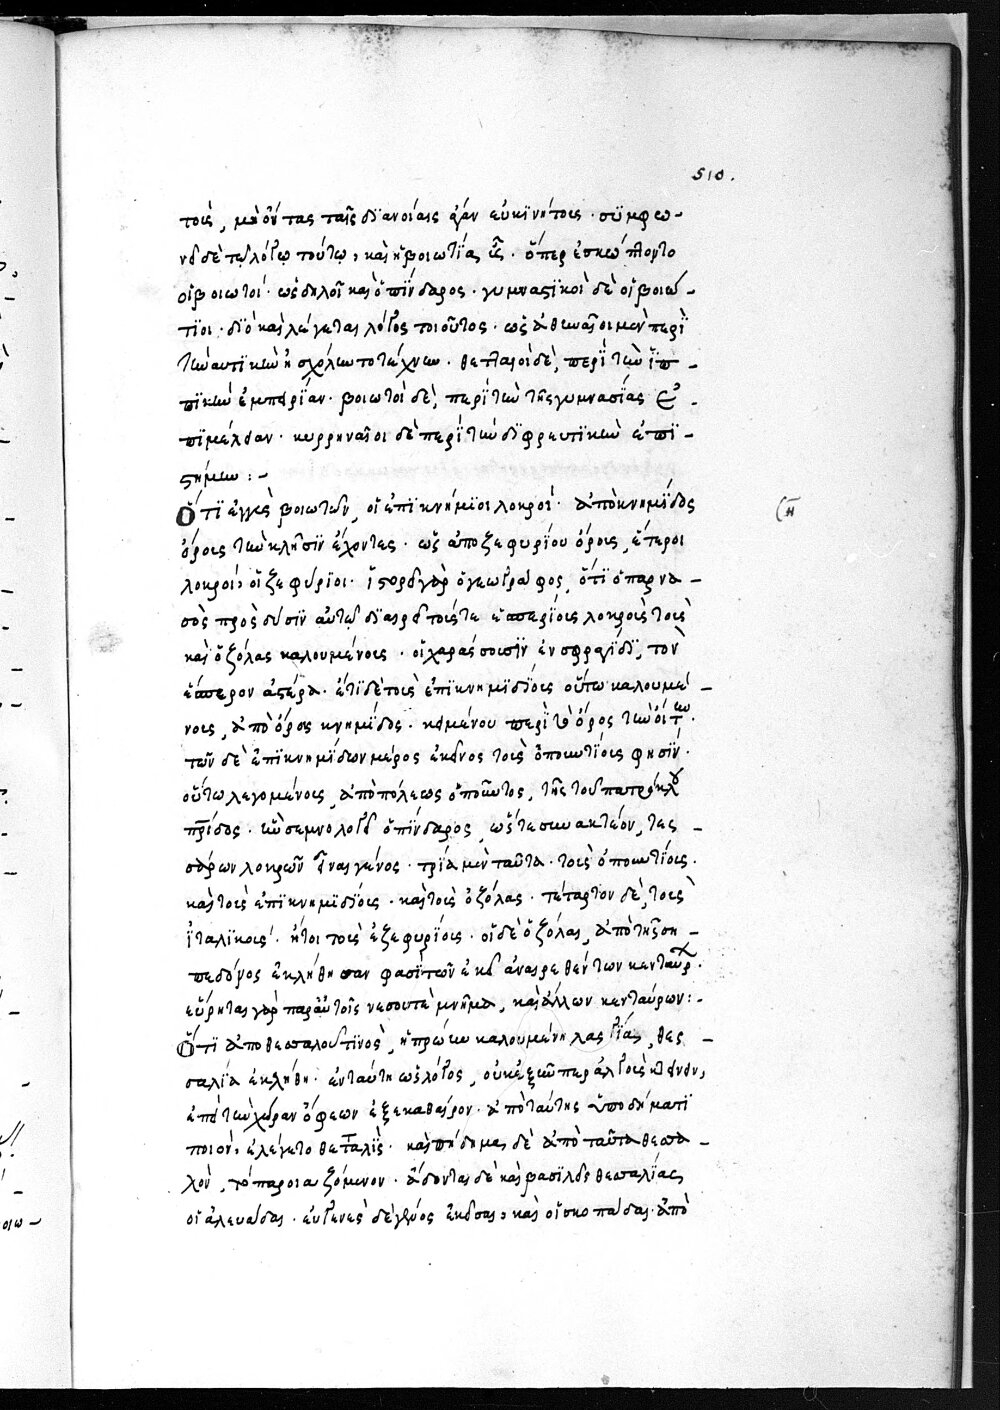 510.
τοις, μὴ ὄντας ταῖς διανοίαις ἄγαν εὐκινήτοις · σύμφω-
νον δὲ τῷ λόγῳ τούτῳ, καὶ ἡ βοιωτία ὗς · ὅπερ ἐσκώπτοντο
οἱ βοιωτοί · ὡς δηλοῖ καὶ ὁ πίνδαρος · γυμναστικοὶ δὲ οἱ βοιώ-
τιοι · διὸ καὶ λέγεται λόγος τοιοῦτος · ὡς ἀθηναῖοι μὲν περὶ
τῶν ἀττικῶν ἠσχόλωντο τέχνων · θετταλοὶ δὲ, περὶ τῶν ἱπ-
πικῶν ἐμπειρίαν · βοιωτοὶ δὲ, περὶ τῶν τῆς γυμνασίας ἐ-
πιμέλειαν · κυρρηναῖοι δὲ περὶ τῶν διφρευτικῶν ἐπι-
στήμων : -
Ὅτι ἐγγὺς βοιωτῶν, οἱ ἐπικνημίδιοι λοκροί · ἀπὸ κνημίδος
ὄρους τῶν κλῆσιν ἔχοντες · ὡς ἀπὸ ζεφυρίου ὄρους, ἕτεροι
λοκροί, οἱ ζεφύριοι · ἱστορεῖ γὰρ ὁ γεωγράφος, ὅτι ὁ παρνα-
σὸς πρὸς δύσιν αὐτῷ διαιρεῖ τούς τε ἑσπερίους λοκροὺς τοὺς
καὶ ὀζόλας καλουμένους · οἳ χαράσσουσιν ἐν σφραγίδι, τὸν
ἕσπερον ἀστέρα · ἔτι δὲ τοὺς ἐπικνημιδίους οὕτω καλουμέ-
νους, ἀπὸ ὄρους κνημίδος · κειμένου περὶ τὸ ὄρος τῶν οἰτ
τῶν δὲ ἐπικνημίδων μέρος ἐκεῖνος τοὺς ὀπουντίους φησίν ·
οὕτω λεγομένους, ἀπὸ πόλεως ὀποῦντος, τῆς τοῦ πατρόκλου
πατρίδος · ἣν σεμνολογεῖ ὁ πίνδαρος, ὥστε συνακτέον, τες-
σάρων λοκρῶν εἶναι γένος · τρία μὲν ταῦτα · τοὺς ὀπουντίους ·
καὶ τοὺς ἐπικνημιδίους · καὶ τοὺς ὀζόλας · τέταρτον δὲ, τοὺς
ἰταλικούς · ἤτοι τοὺς ἐζεφυρίους · οἱ δὲ ὀζόλαι, ἀπὸ τῆς ση-
πεδόνος ἐκλήθησαν φασὶ τῶν ἐκεῖ ἀναιρεθέντων κενταύρ
εὕρηται γὰρ παρ' αὐτοῖς νέσου τὲ μνῆμα, καὶ ἄλλων κενταύρων : -
Ὅτι ἀπὸ θεσσαλοῦ τινὸς, ἡ πρώην καλουμένη πελασγία, θες-
σαλία ἐκλήθη · ἐν ταύτῃ ὡς λόγος, οὐκ ἐξῆν πελαργοὺς κτείνειν,
ἐπεὶ τῶν χώραν ὄφεων ἐξεκάθαιρον · ἀπὸ ταύτης ὑποδήματι
ποιὸν, ἐλέγετο θετταλίς · καὶ πήδημα δὲ ἀπὸ ταῦτα θεσσα-
λὸν, τὸ παροιμιαζόμενον · ἄδονται δὲ καὶ βασιλεῖς θεσσαλίας
οἱ ἀλευάδαι · εὐγενὲς δὲ γένος ἐκεῖσαι, καὶ οἱ σκοπάδαι · ἀπὸ